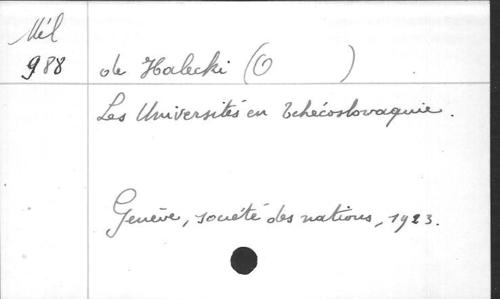 Mél
988 de Halecki (O )
Les Universités en Tchécoslovaquie.
Genève, société des nations, 1923.